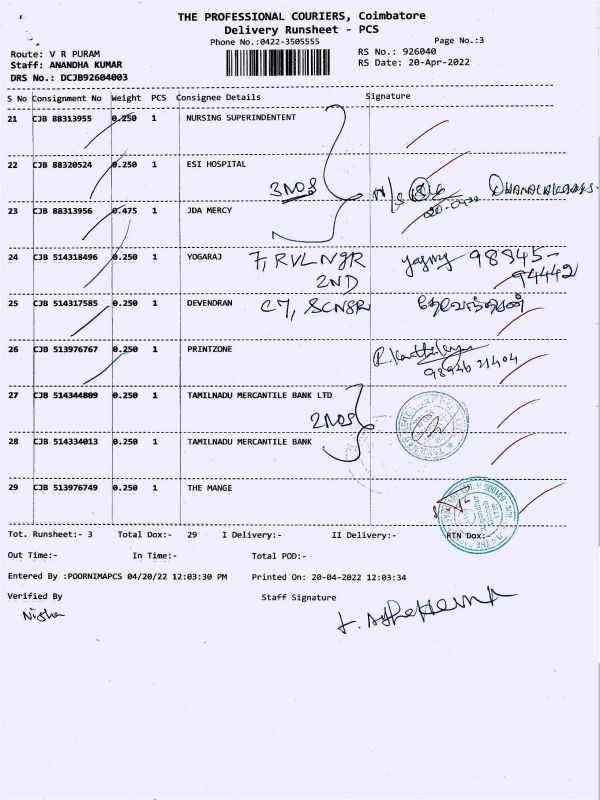 THE PROFESSIONAL COURIERS, Coimbatore
Delivery Runsheet - PCS
Phone No.:0422-3505555
Page No.:3
Route: V R PURAM
RS No.: 926040
Staff: ANANDHA KUMAR
RS Date: 20-Apr-2022
DRS No.: DCJB92604003
S No Consignment No Weight PCS Consignee Details Signature
21 CJB 88313955 0.250 1 NURSING SUPERINDENTENT
22 CJB 88320524 0.250 1 ESI HOSPITAL
3 NOS
23 CJB 88313956 0.475 1 JDA MERCY
24 CJB 514318496 0.250 1 YOGARAJ 7, RVL NGR 98945-
2ND 94442
25 CJB 514317585 0.250 1 DEVENDRAN C7, SCNGR தேவேந்திரன்
26 CJB 513976767 0.250 1 PRINTZONE
98946 21404
27 CJB 514344809 0.250 1 TAMILNADU MERCANTILE BANK LTD
2 NOS
28 CJB 514334013 0.250 1 TAMILNADU MERCANTILE BANK
29 CJB 513976749 0.250 1 THE MANGE
Tot. Runsheet:- 3 Total Dox:- 29 I Delivery:- II Delivery:- RTN Dox:-
Out Time:- In Time:- Total POD:-
Entered By :POORNIMAPCS 04/20/22 12:03:30 PM Printed On: 20-04-2022 12:03:34
Verified By Staff Signature
Nisha